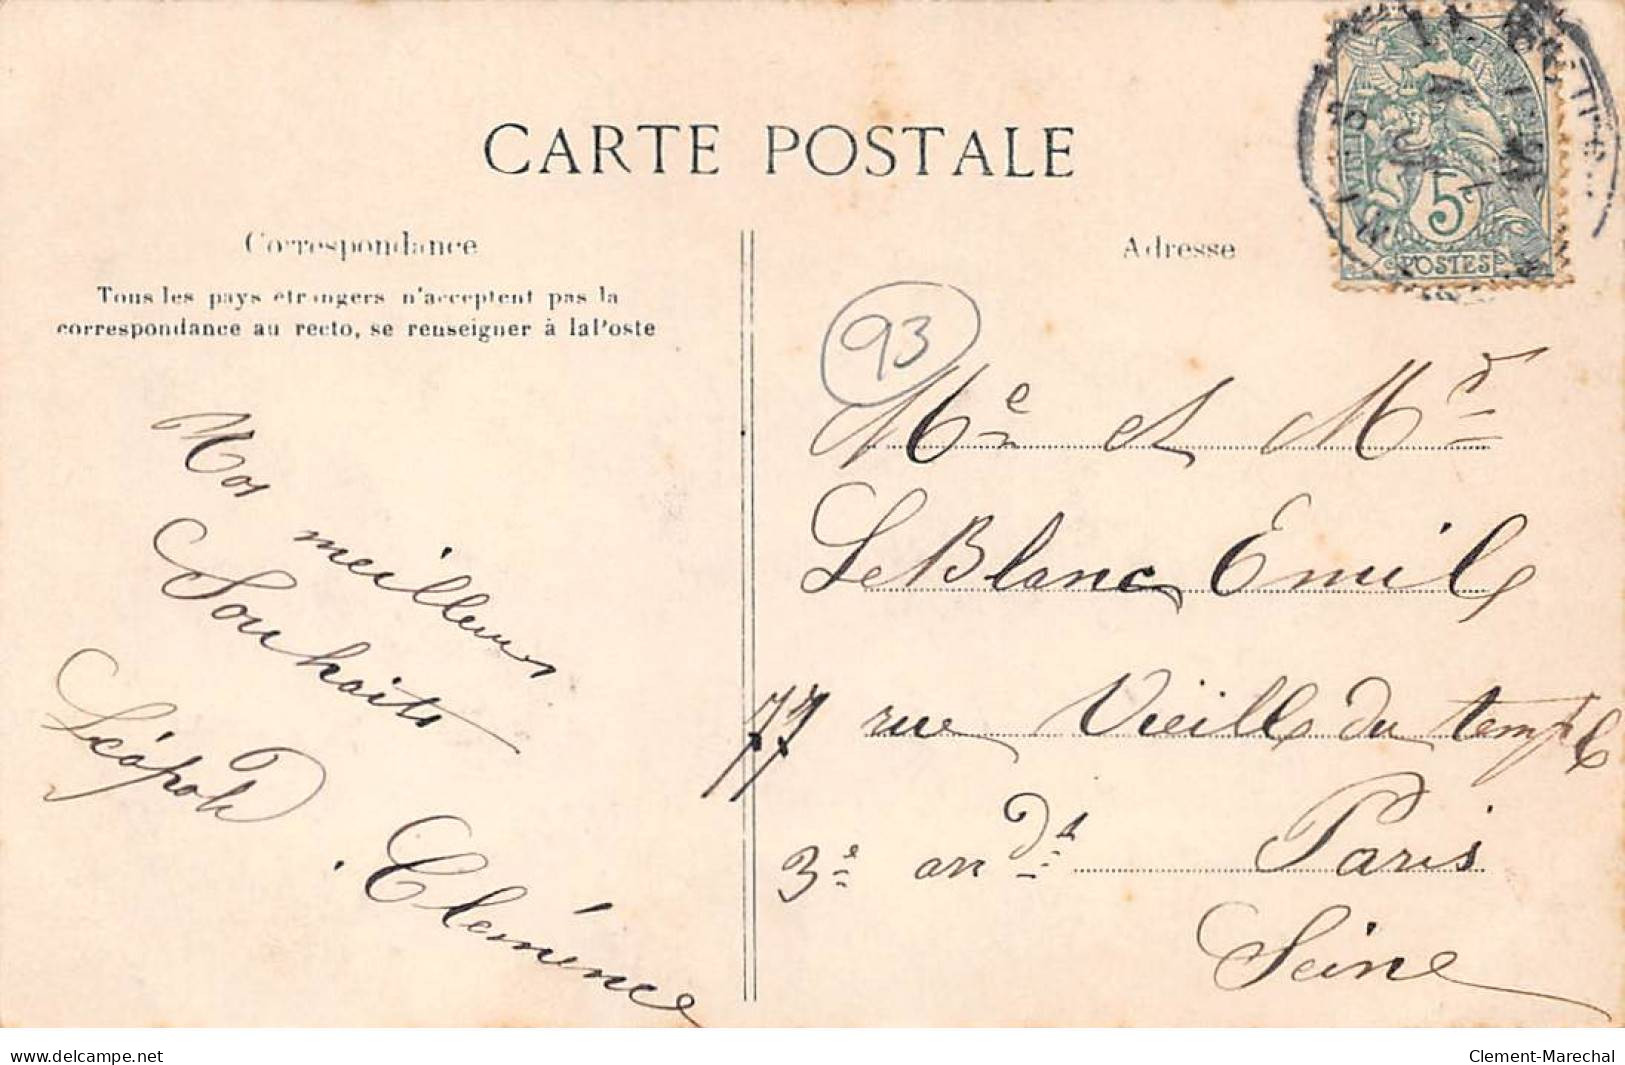 CARTE POSTALE
Correspondance
Tous les pays étrangers n'acceptent pas la
correspondance au recto, se renseigner à laPoste
Adresse
5
POSTES
93
Nos meilleurs
Souhaits
Léopold
Cleménce
Me et Mr
LeBlanc Emile
77 rue Vieille du temple
3e arrdt Paris
Seine
delcampe.net
Clement-Marechal